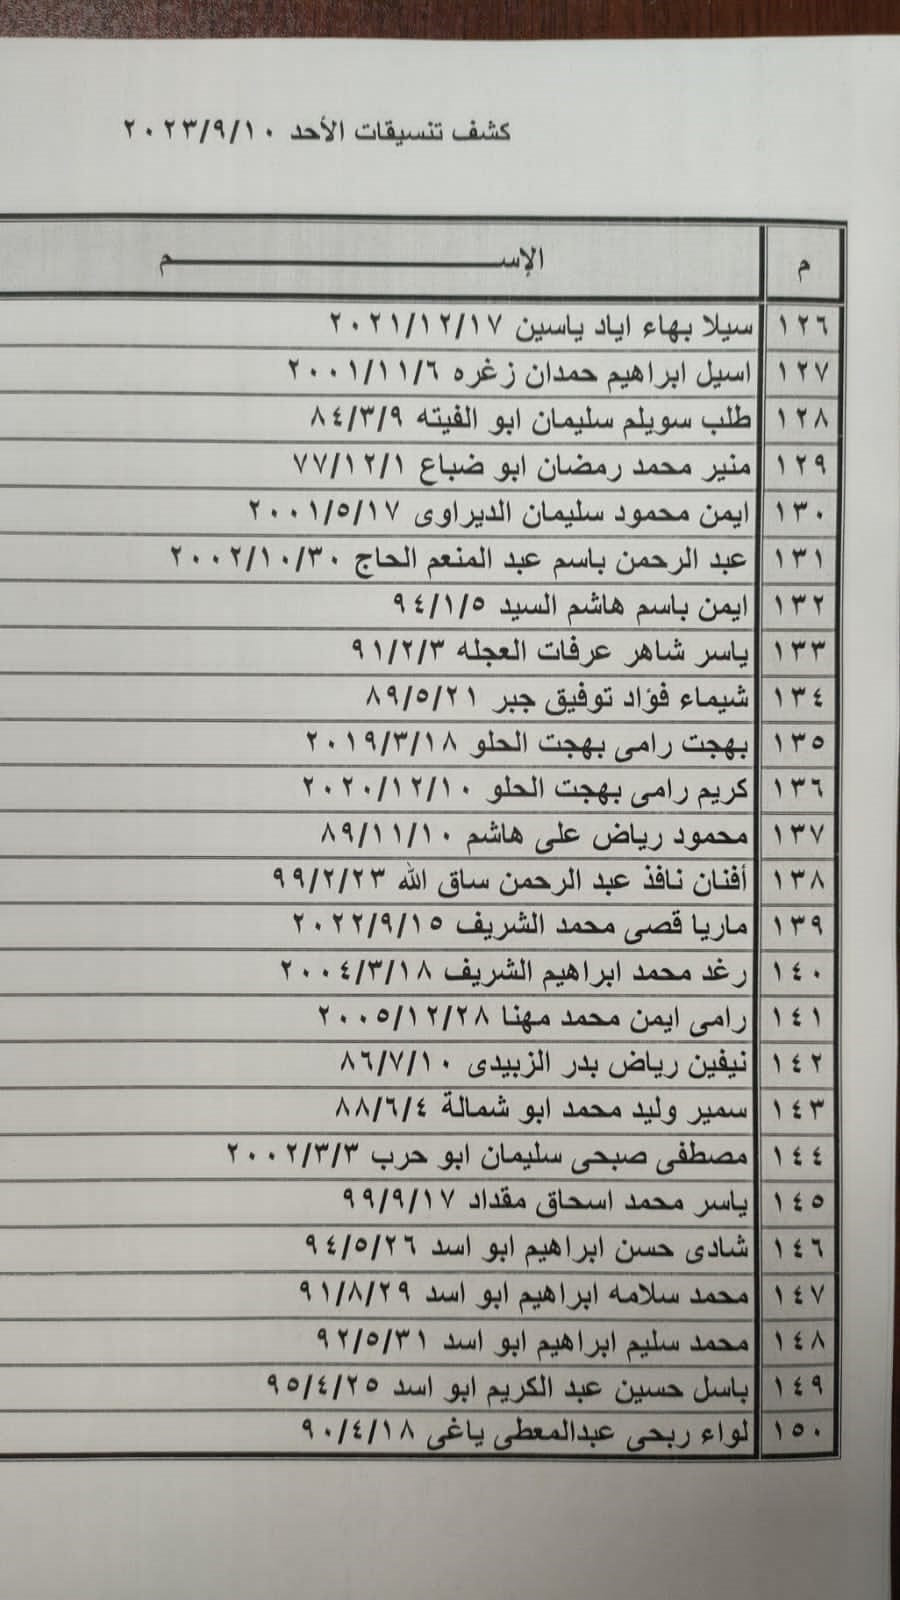 كشف تنسيقات الأحد ٢٠٢٣/٩/١٠
م الإســـــــــــــــم
١٢٦ سيلا بهاء اياد ياسين ٢٠٢١/١٢/١٧
١٢٧ اسيل ابراهيم حمدان زغره ٢٠٠١/١١/٦
١٢٨ طلب سويلم سليمان ابو الفيته ٨٤/٣/٩
١٢٩ منير محمد رمضان ابو ضباع ٧٧/١٢/١
١٣٠ ايمن محمود سليمان الديراوى ٢٠٠١/٥/١٧
١٣١ عبد الرحمن باسم عبد المنعم الحاج ٢٠٠٢/١٠/٣٠
١٣٢ ايمن باسم هاشم السيد ٩٤/١/٥
١٣٣ ياسر شاهر عرفات العجله ٩١/٢/٣
١٣٤ شيماء فؤاد توفيق جبر ٨٩/٥/٢١
١٣٥ بهجت رامى بهجت الحلو ٢٠١٩/٣/١٨
١٣٦ كريم رامى بهجت الحلو ٢٠٢٠/١٢/١٠
١٣٧ محمود رياض على هاشم ٨٩/١١/١٠
١٣٨ أفنان نافذ عبد الرحمن ساق الله ٩٩/٢/٢٣
١٣٩ ماريا قصى محمد الشريف ٢٠٢٢/٩/١٥
١٤٠ رغد محمد ابراهيم الشريف ٢٠٠٤/٣/١٨
١٤١ رامى ايمن محمد مهنا ٢٠٠٥/١٢/٢٨
١٤٢ نيفين رياض بدر الزبيدى ٨٦/٧/١٠
١٤٣ سمير وليد محمد ابو شمالة ٨٨/٦/٤
١٤٤ مصطفى صبحى سليمان ابو حرب ٢٠٠٢/٣/٣
١٤٥ ياسر محمد اسحاق مقداد ٩٩/٩/١٧
١٤٦ شادى حسن ابراهيم ابو اسد ٩٤/٥/٢٦
١٤٧ محمد سلامه ابراهيم ابو اسد ٩١/٨/٢٩
١٤٨ محمد سليم ابراهيم ابو اسد ٩٢/٥/٣١
١٤٩ باسل حسين عبد الكريم ابو اسد ٩٥/٤/٢٥
١٥٠ لواء ربحى عبدالمعطى ياغى ٩٠/٤/١٨